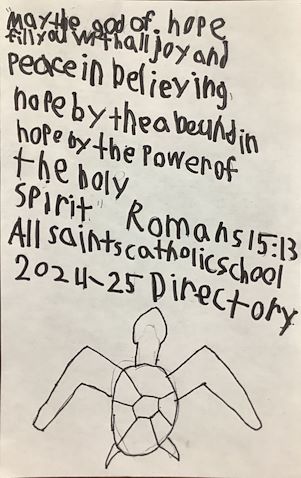 "may the god of. hope
fill you with all joy and
peace in believing,
hope by the abound in
hope by the power of
the holy
spirit" Romans 15:13
All saints catholic school
2024-25 Directory